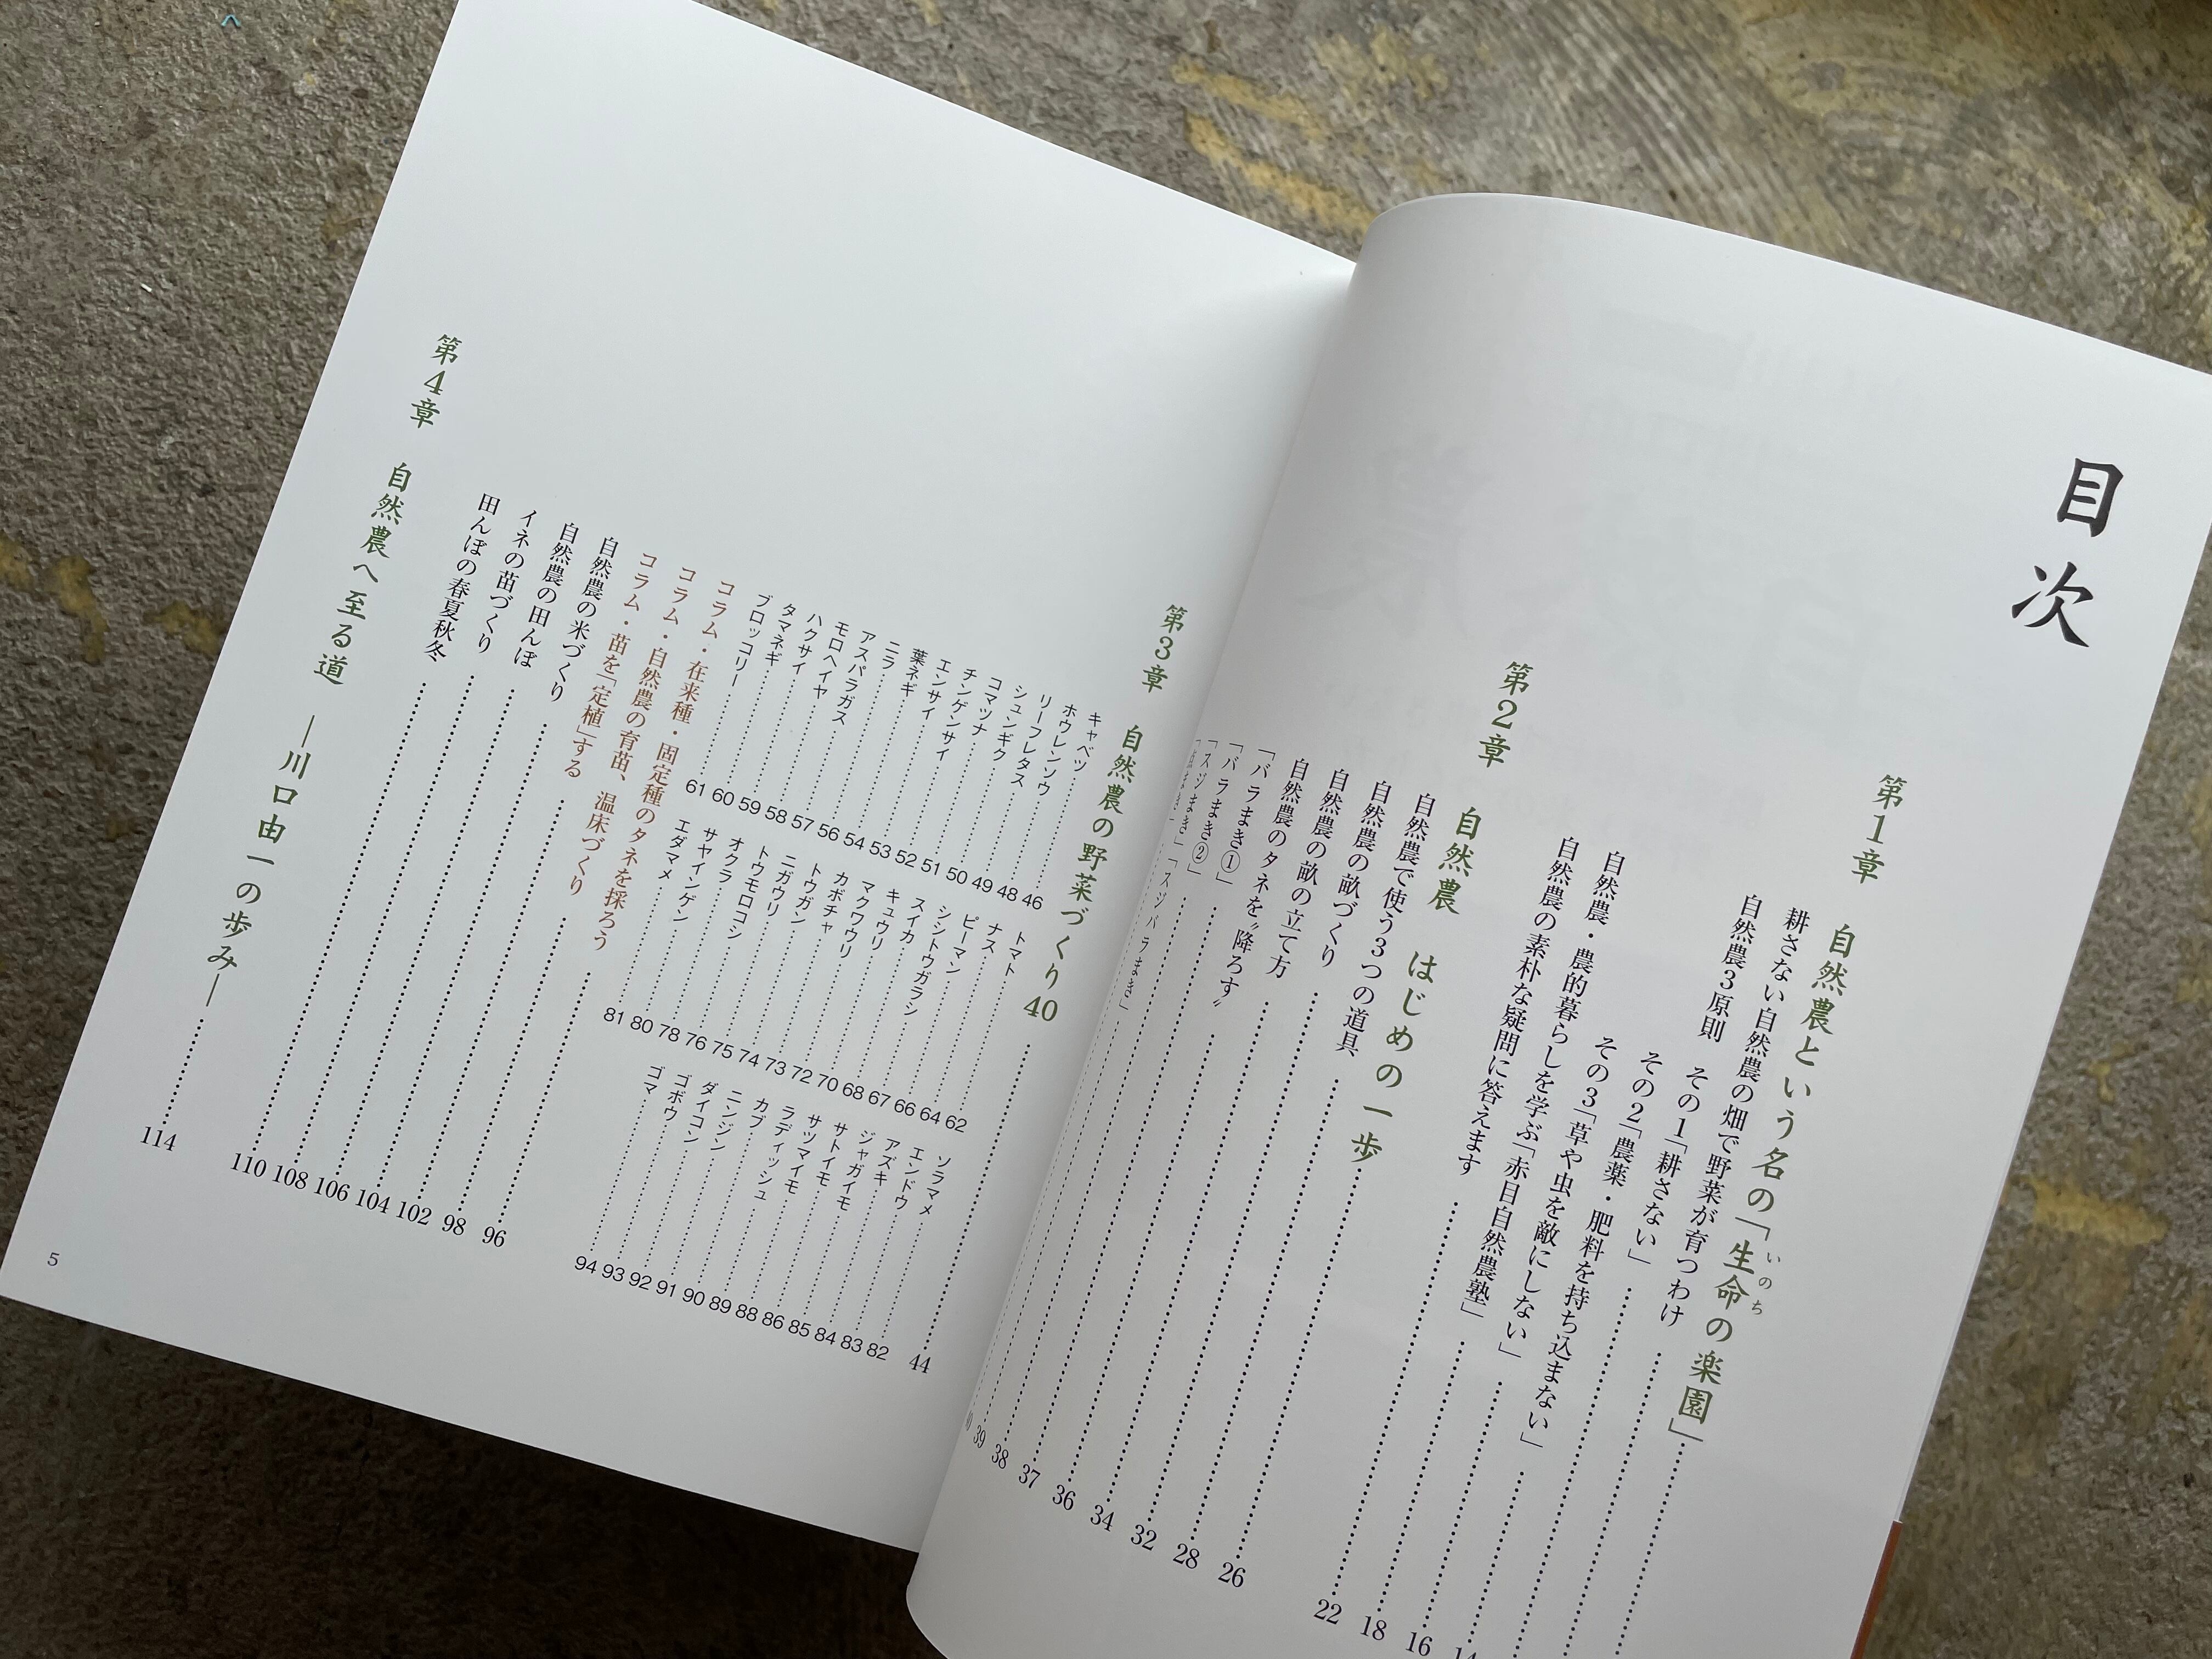 目次
第1章 自然農という名の「生命の楽園」
いのち
耕さない自然農の畑で野菜が育つわけ
自然農3原則 その1「耕さない」
その2「農薬・肥料を持ち込まない」
その3「草や虫を敵にしない」 16
自然農・農的暮らしを学ぶ「赤目自然農塾」 18
自然農の素朴な疑問に答えます 22
第2章 自然農 はじめの一歩 26
自然農で使う3つの道具 28
自然農の畝づくり 32
自然農の畝の立て方 34
自然農のタネを〝降ろす〟 36
「バラまき①」 37
「バラまき②」 38
「スジまき」「スジバラまき」 39
第3章 自然農の野菜づくり40 44
キャベツ 46
ホウレンソウ 48
リーフレタス 49
シュンギク 50
コマツナ 51
チンゲンサイ 52
エンサイ 53
葉ネギ 54
ニラ 56
アスパラガス 57
モロヘイヤ 58
ハクサイ 59
タマネギ 60
ブロッコリー 61
トマト 62
ナス 64
ピーマン 66
シシトウガラシ 67
スイカ 68
キュウリ 70
マクワウリ 72
カボチャ 73
トウガン 74
ニガウリ 75
トウモロコシ 76
オクラ 78
サヤインゲン 80
エダマメ 81
ソラマメ 82
エンドウ 83
アズキ 84
ジャガイモ 85
サトイモ 86
サツマイモ 88
ラディッシュ 89
カブ 90
ニンジン 91
ダイコン 92
ゴボウ 93
ゴマ 94
コラム・在来種・固定種のタネを採ろう 96
コラム・自然農の育苗、温床づくり 98
コラム・苗を「定植」する 102
自然農の米づくり 104
自然農の田んぼ 106
イネの苗づくり 108
田んぼの春夏秋冬 110
第4章 自然農へ至る道 ―川口由一の歩み― 114
5